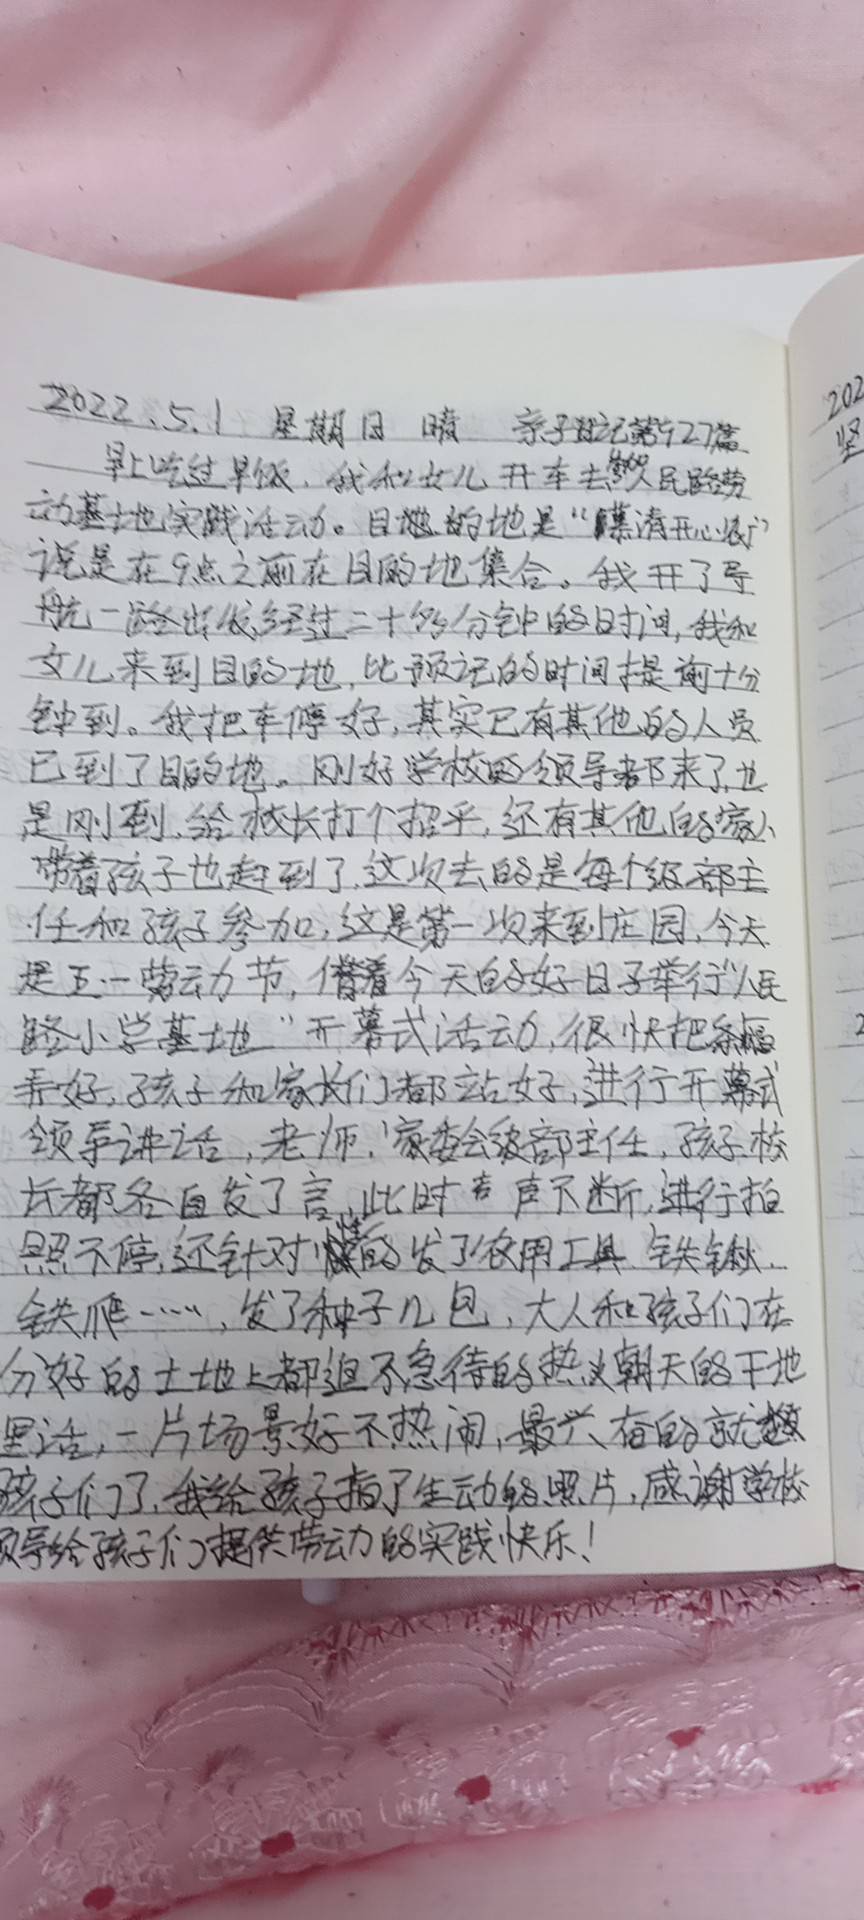 2022.5.1 星期日 晴 亲子日记第927篇
早上吃过早饭,我和女儿开车去人民路劳
动基地实践活动。目的地是“清开心农广”
说是在9点之前在目的地集合。我开了导
航一路出发,经过二十多分钟的时间,我和
女儿来到目的地,比预记的时间提前十分
钟到。我把车停好,其实已有其他的人员
已到了目的地。刚好学校的领导都来了,也
是刚到,给校长打个招乎,还有其他的家长
带着孩子也赶到了,这次去的是每个级部主
任和孩子参加,这是第一次来到庄园,今天
是五一劳动节,借着今天的好日子举行“人民
路小学基地”开幕式活动,很快把条幅
弄好,孩子和家长们都站好,进行开幕式
领导讲话,老师,家委会级部主任,孩子校
长都各自发了言,此时声不断,进行拍
照不停,还针对的发了农用工具 铁锹…
铁爬……,发了种子几包,大人和孩子们在
分好的土地上都迫不急待的热火朝天的干地
里活,一片场景好不热闹,最兴奋的就数
孩子们了,我给孩子拍了生动的照片,感谢学校
领导给孩子们提供劳动的实践快乐!
202
坚
2